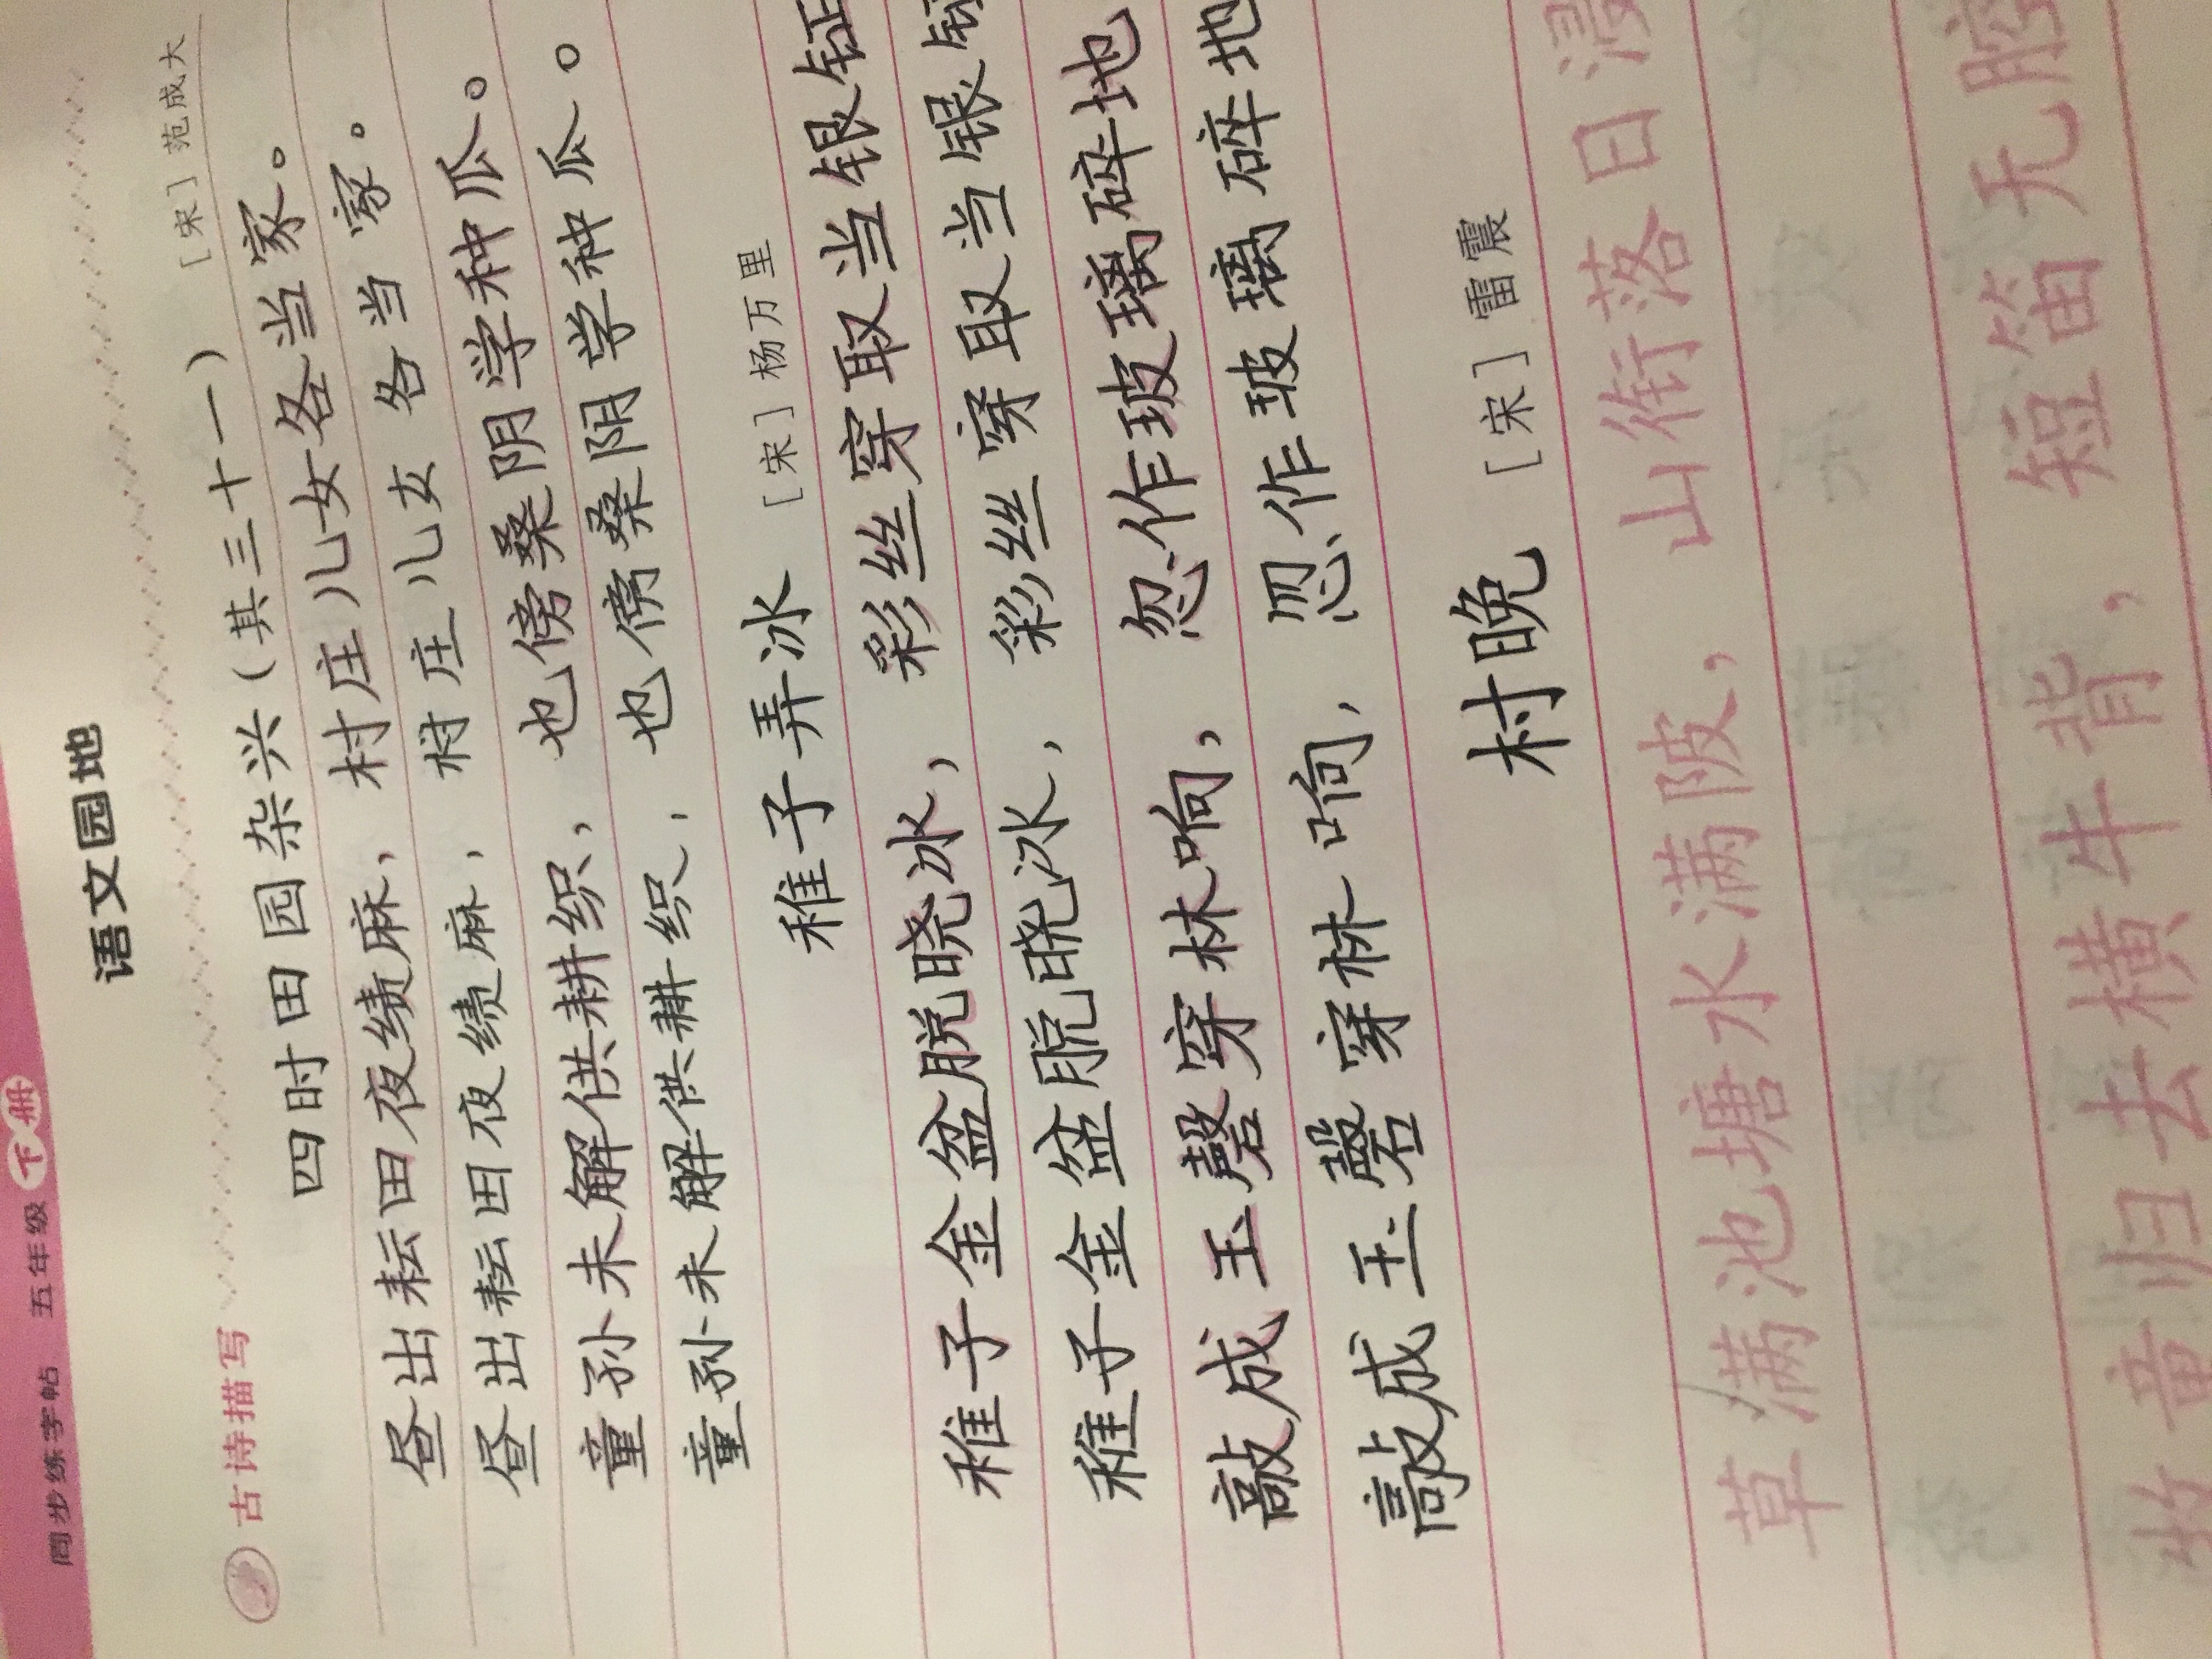 同步练字帖 五年级 下册
语文园地
古诗描写
四时田园杂兴（其三十一） ［宋］范成大
昼出耘田夜绩麻，村庄儿女各当家。
昼出耘田夜绩麻，村庄儿女各当家。
童孙未解供耕织，也傍桑阴学种瓜。
童孙未解供耕织，也傍桑阴学种瓜。
稚子弄冰 ［宋］杨万里
稚子金盆脱晓冰，彩丝穿取当银钲
稚子金盆脱晓冰，彩丝穿取当银钲
敲成玉磬穿林响，忽作玻璃碎地
敲成玉磬穿林响，忽作玻璃碎地
村晚 ［宋］雷震
草满池塘水满陂，山衔落日浸
牧童归去横牛背，短笛无腔